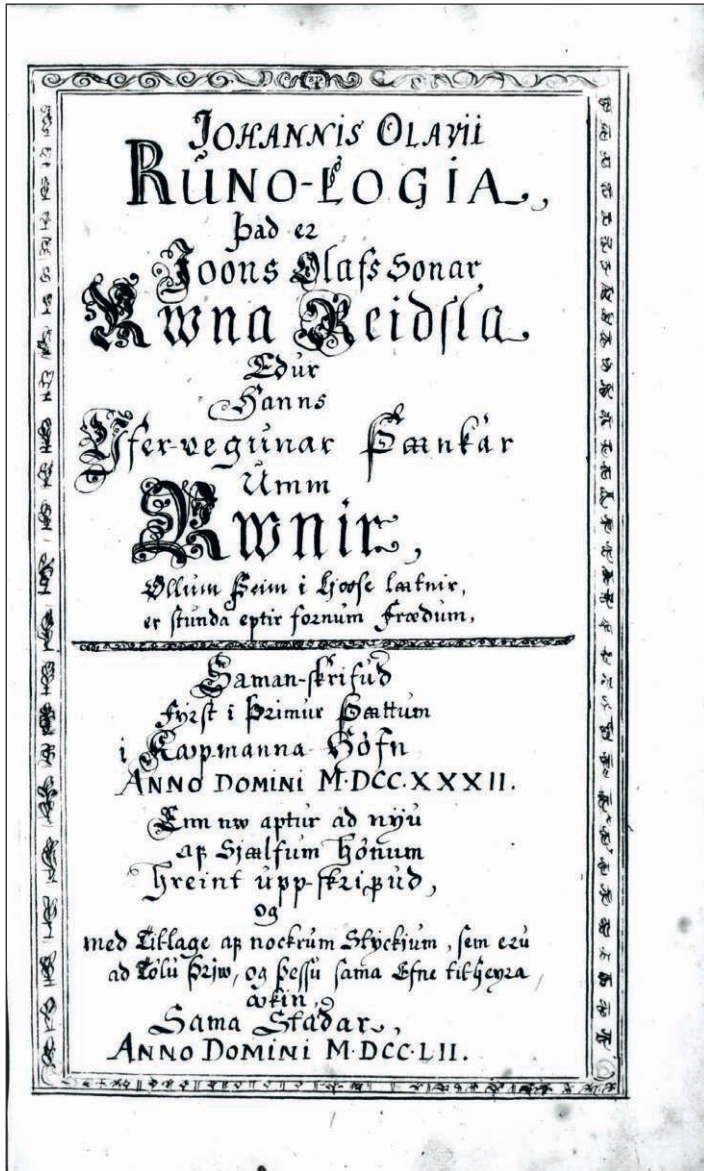 JOHANNIS OLAVII
RUNO-LOGIA,
Þad er
Joons Olafs Sonar
Rwna Reidſla
Edur
Hanns
Yfer-vegunar Þænkar
Umm
Rwnir,
Ollum Þeim i Ljoose lætnir,
er ſtunda eptir fornum Frædum,
Saman-ſkrifud
Fyrſt i Þrimur Þættum
i Kaupmanna Höfn
ANNO DOMINI M·DCC·XXXII.
Enn nw aptur ad nÿu
af Sjælfum hönum
hreint upp-ſkrifud,
og
med Tillage af nockrum Stÿckium, ſem eru
ad Tölu Þrjw, og Þeſſu ſama Efne tilheyra,
aukin,
Sama Stadar,
ANNO DOMINI M·DCC·LII.